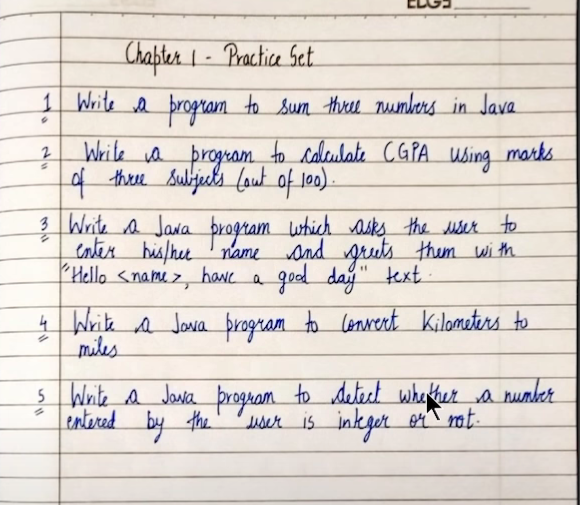 Chapter 1 - Practice Set
1 Write a program to sum three numbers in Java
2 Write a program to calculate CGPA using marks
of three subjects (out of 100).
3 Write a Java program which asks the user to
enter his/her name and greets them with
"Hello <name>, have a good day" text.
4 Write a Java program to convert Kilometers to
miles
5 Write a Java program to detect whether a number
entered by the user is integer or not.